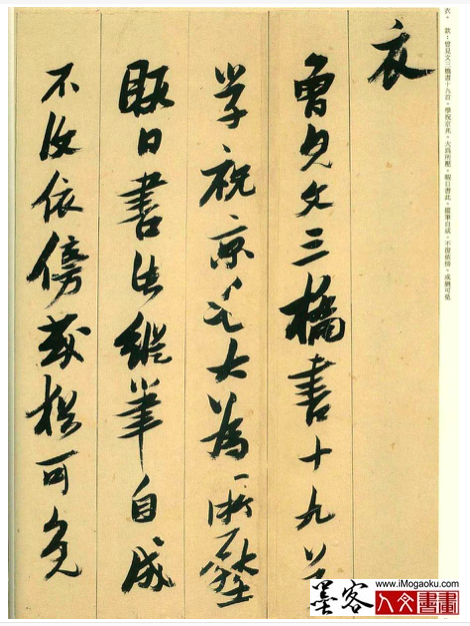 衣。款:曾見文三橋書十九首。學祝京兆。大爲所壓。暇日書此。縱筆自成。不復依傍。或可免
衣
曾見文三橋書十九首
学祝京兆大為所壓
暇日書此縱筆自成
不復依傍或可免
www.iMogaoku.com
墨客
人文書畫